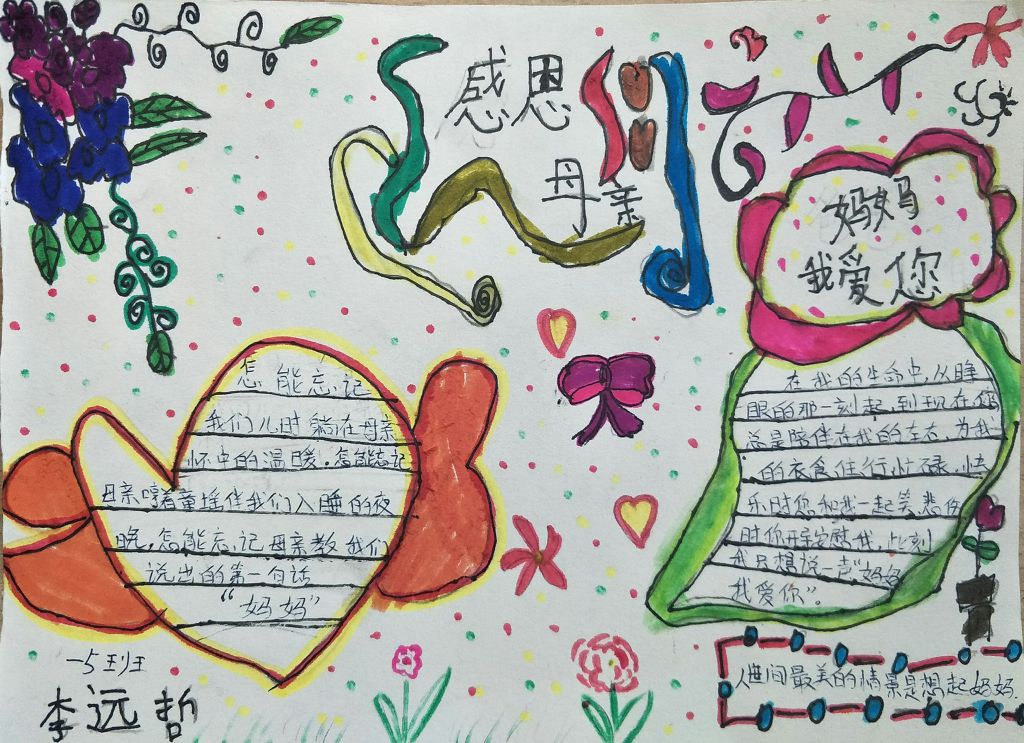 感恩
母亲
妈妈
我爱您
怎能忘记
我们儿时躺在母亲
怀中的温暖。怎能忘记
母亲哼着童谣伴我们入睡的夜
晚,怎能忘记母亲教我们
说出的第一句话
“妈妈”
在我的生命中,从睁
眼的那一刻起,到现在您
总是陪伴在我的左右,为我
的衣食住行忙碌,快
乐时您和我一起笑,悲伤
时你开安慰我,此刻
我只想说一声“妈妈
我爱您”。
一5班
李远哲
人世间最美的情景是想起妈妈.